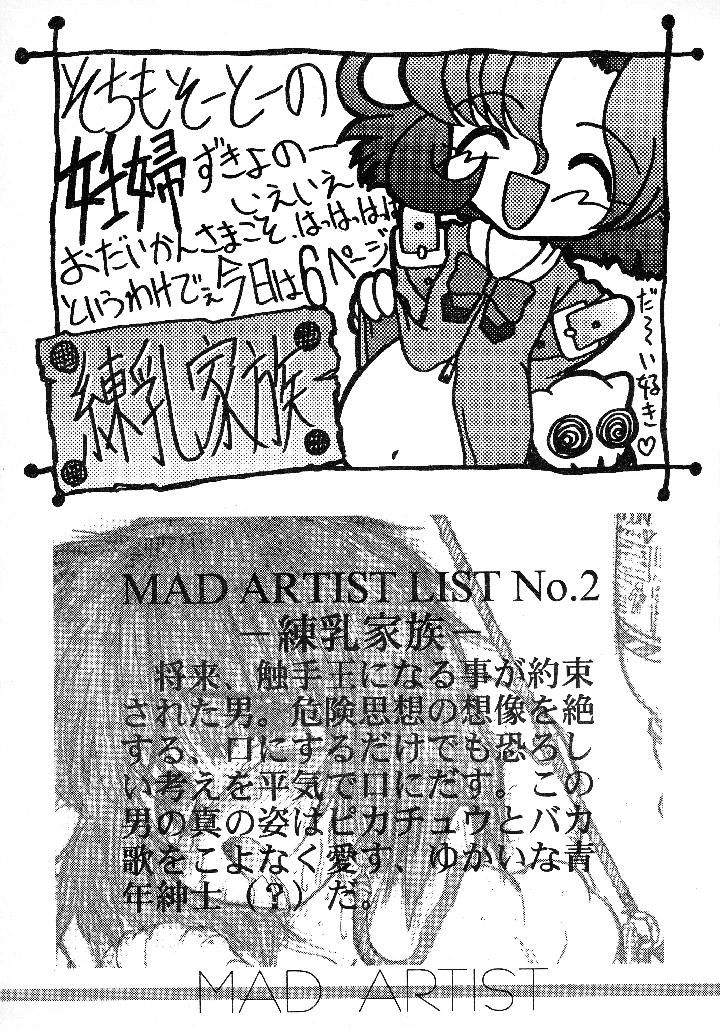 そちもそーとーの
妊婦ずきよのー
いえいえ
おだいかんさまこそ、はっはっはは
というわけでぇ今日は6ページ
だ～い好き♡
練乳家族
MAD ARTIST LIST No.2
－練乳家族－
将来、触手王になる事が約束
された男。危険思想の想像を絶
する、口にするだけでも恐ろし
い考えを平気で口にだす。この
男の真の姿はピカチュウとバカ
歌をこよなく愛す、ゆかいな青
年紳士（？）だ。
MAD ARTIST